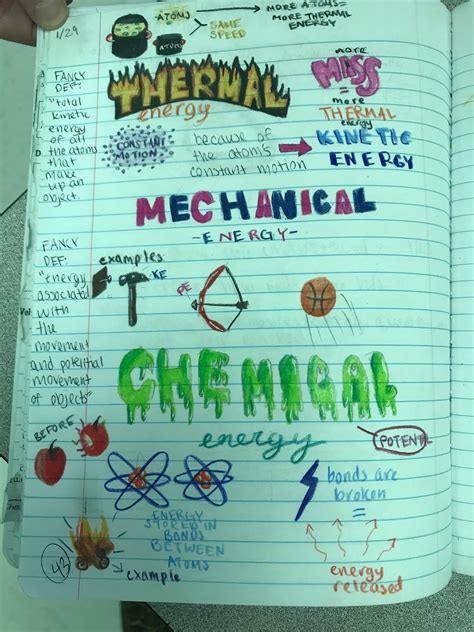 1/29
ATOMS
ATOMS
SAME
SPEED
MORE ATOMS =
MORE THERMAL
ENERGY
FANCY
DEF:
"total
kinetic
energy
of all
the atoms
that
make
up an
object.
THERMAL
energy
more
MASS
=
more
THERMAL
energy
CONSTANT
MOTION
because of
the atom's
constant motion
KINETIC
ENERGY
MECHANICAL
-ENERGY-
FANCY
DEF:
"energy
associated
with
the
movement
and potential
movement
of objects"
examples
KE
PE
CHEMICAL
energy
POTENT
BEFORE
ENERGY
STORED IN
BONDS
BETWEEN
ATOMS
bonds are
broken
=
energy
released
43
example